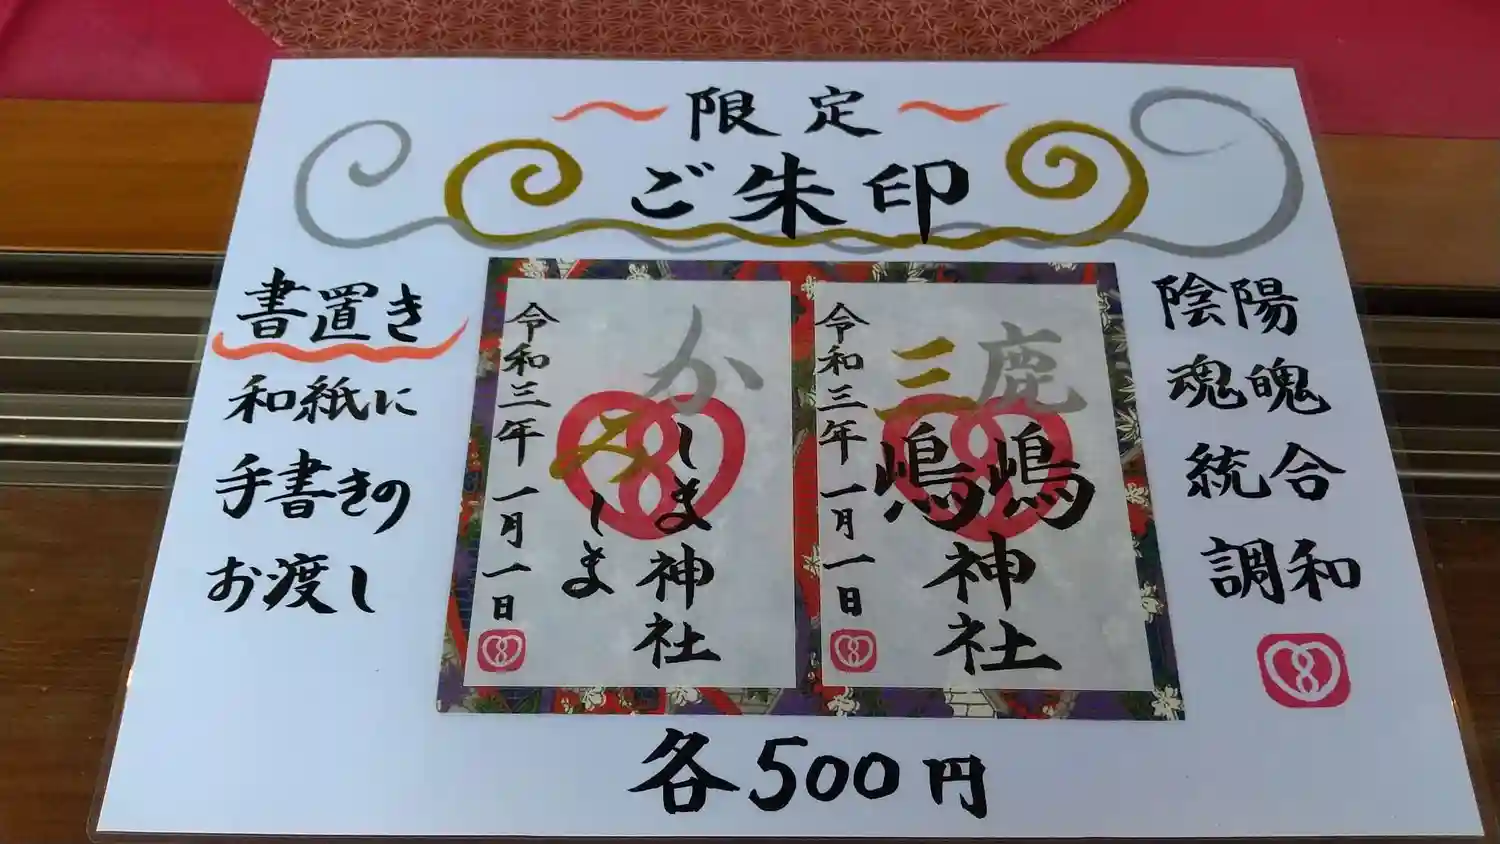 ～限定～
ご朱印
書置き
和紙に
手書きの
お渡し
陰陽
魂魄
統合
調和
鹿嶋神社
三嶋
令和三年一月一日
かしま神社
みしま
令和三年一月一日
各500円